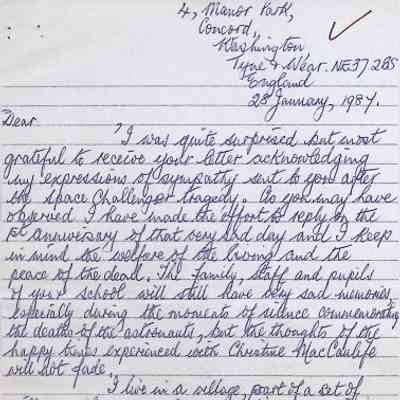 4, Manor Park,
Concord,
Washington,
Tyne & Wear. NE37 2BS
England
28 January, 1987.
Dear
I was quite surprised but most
grateful to receive your letter acknowledging
my expressions of sympathy sent to you after
the Space Challenger tragedy. As you may have
observed I have made the effort to reply on the
1st anniversary of that very sad day and I keep
in mind the welfare of the living and the
peace of the dead. The family, staff and pupils
of your school will still have very sad memories,
especially during the moments of silence commemorating
the deaths of the astronauts, but the thoughts of the
happy times experienced with Christine MacCaulife
will not fade.
I live in a village, part of a set of